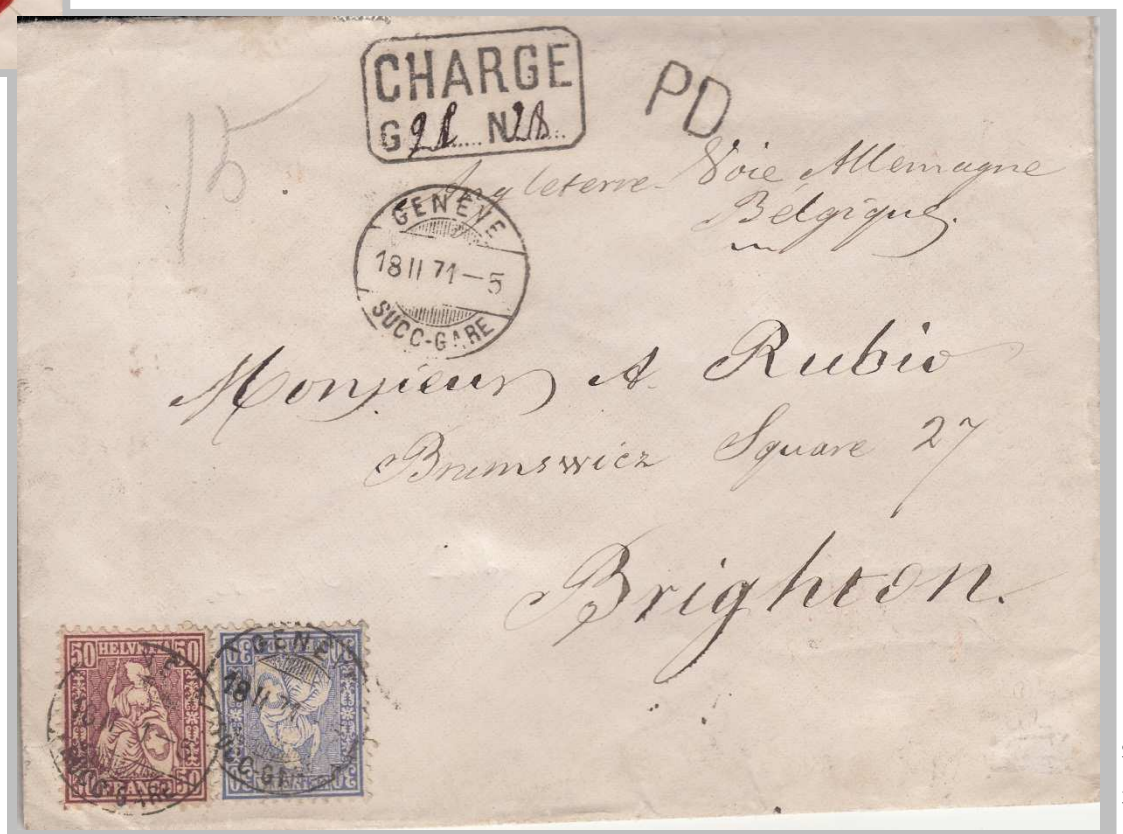 CHARGE
G N
PD
15
Angleterre Voie Allemagne
Belgique.
GENÈVE
18 II 71–5
SUCC-GARE
Monsieur A. Rubio
Brumswicz Square 27
Brighton.
50 HELVETIA 50
50 FRANCO 50
30 30
30 30
GENÈVE
18 II 71
SUCC-GARE